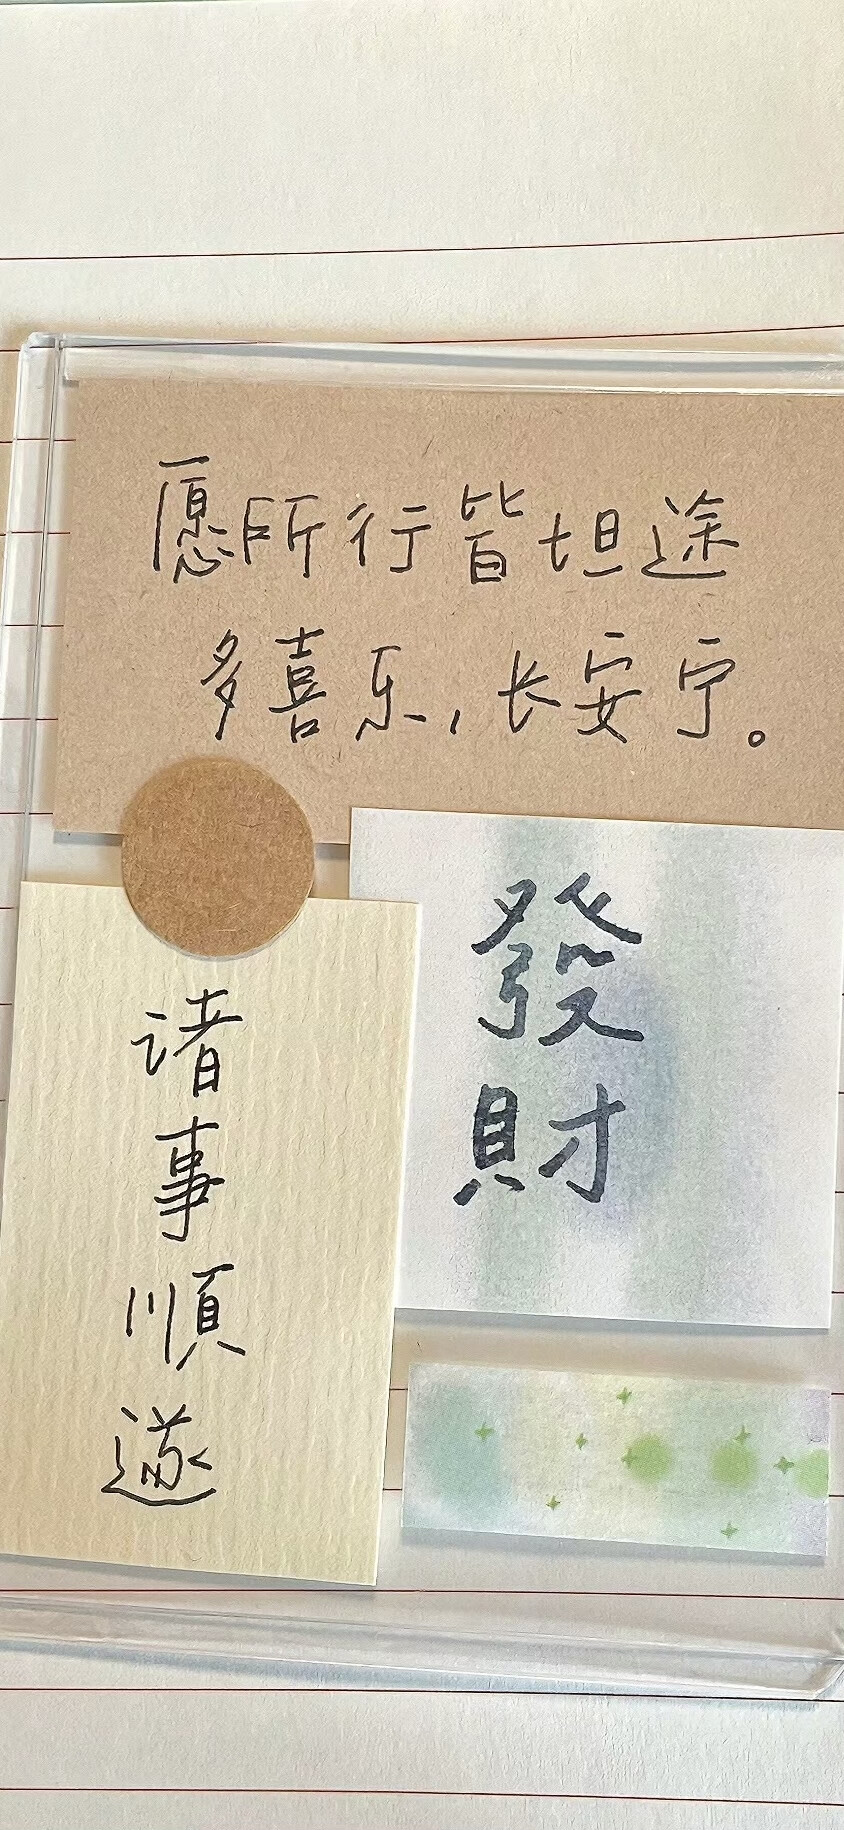 愿所行皆坦途
多喜乐,长安宁。
發
財
诸
事
順
遂